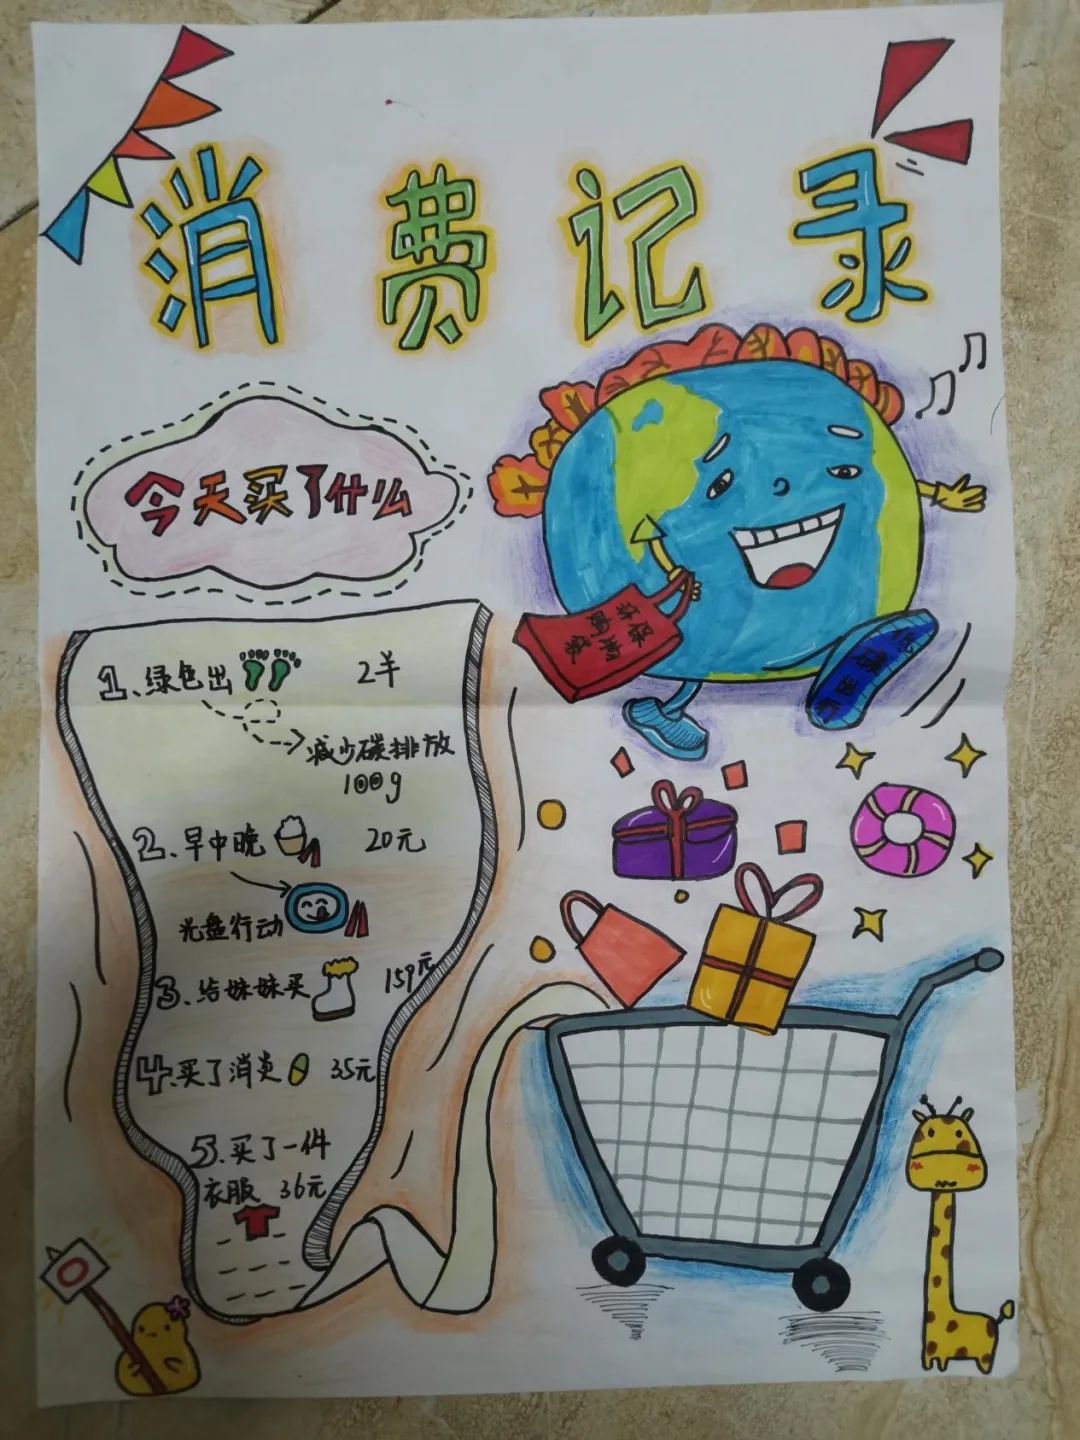 消费记录
今天买了什么
1、绿色出 2羊
减少碳排放
100g
2、早中晚 20元
光盘行动
3、给妹妹买 159元
4.买了消炎 35元
5.买了一件
衣服 36元
环保
购物
袋
低碳出行